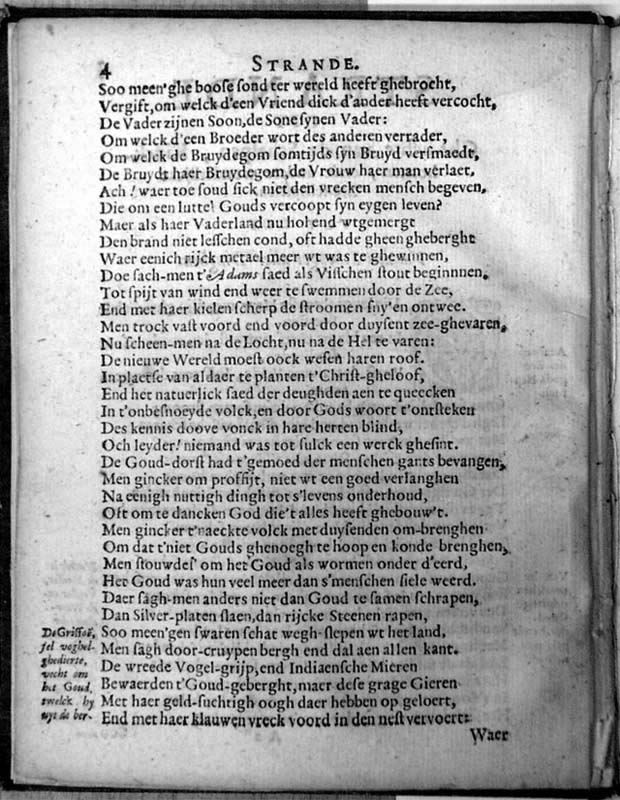 4
STRANDE.
Soo meen'ghe boose sond ter wereld heeft ghebrocht,
Vergift, om welck d'een Vriend dick d'ander heeft vercocht,
De Vader zijnen Soon, de Sone synen Vader:
Om welck d'een Broeder wort des anderen verrader,
Om welck de Bruydegom somtijds syn Bruyd versmaedt,
De Bruydt haer Bruydegom, de Vrouw haer man verlaet.
Ach! waer toe soud sick niet den vrecken mensch begeven,
Die om een luttel Gouds vercoopt syn eygen leven?
Maer als haer Vaderland nu hol end wtgemergt
Den brand niet lesschen cond, oft hadde gheen gheberght
Waer eenich rijck metael meer wt was te ghewinnen,
Doe sach-men t'Adams saed als Visschen stout beginnnen,
Tot spijt van wind end weer te swemmen door de Zee,
End met haer kielen scherp de stroomen sny'en ontwee.
Men trock vast voord end voord door duysent zee-ghevaren,
Nu scheen-men na de Locht, nu na de Hel te varen:
De nieuwe Wereld moest oock wesen haren roof.
In plaetse van aldaer te planten t'Christ-gheloof,
End het natuerlick saed der deughden aen te queecken
In t'onbesnoeyde volck, en door Gods woort t'ontsteken
Des kennis doove vonck in hare herten blind,
Och leyder! niemand was tot sulck een werck ghesint.
De Goud-dorst had t'gemoed der menschen gants bevangen,
Men gincker om proffijt, niet wt een goed verlanghen
Na eenigh nuttigh dingh tot s'levens onderhoud,
Oft om te dancken God die't alles heeft ghebouw't.
Men gincker t'naeckte volck met duysenden om-brenghen
Om dat t'niet Gouds ghenoegh te hoop en konde brenghen,
Men stouwdes' om het Goud als wormen onder d'eerd,
Het Goud was hun veel meer dan s'menschen siele weerd.
Daer sagh-men anders niet dan Goud te samen schrapen,
Dan Silver-platen slaen, dan rijcke Steenen rapen,
Soo meen'gen swaren schat wegh-slepen wt het land,
Men sagh door-cruypen bergh end dal aen allen kant.
De wreede Vogel-grijp, end Indiaensche Mieren
Bewaerden t'Goud-geberght, maer dese grage Gieren
Met haer geld-suchtigh oogh daer hebben op geloert,
End met haer klauwen vreck voord in den nest vervoert:
De Griffoē,
fel voghel-
ghedierte,
vecht om
het Goud,
twelck hy
uyt de ber-
Waer